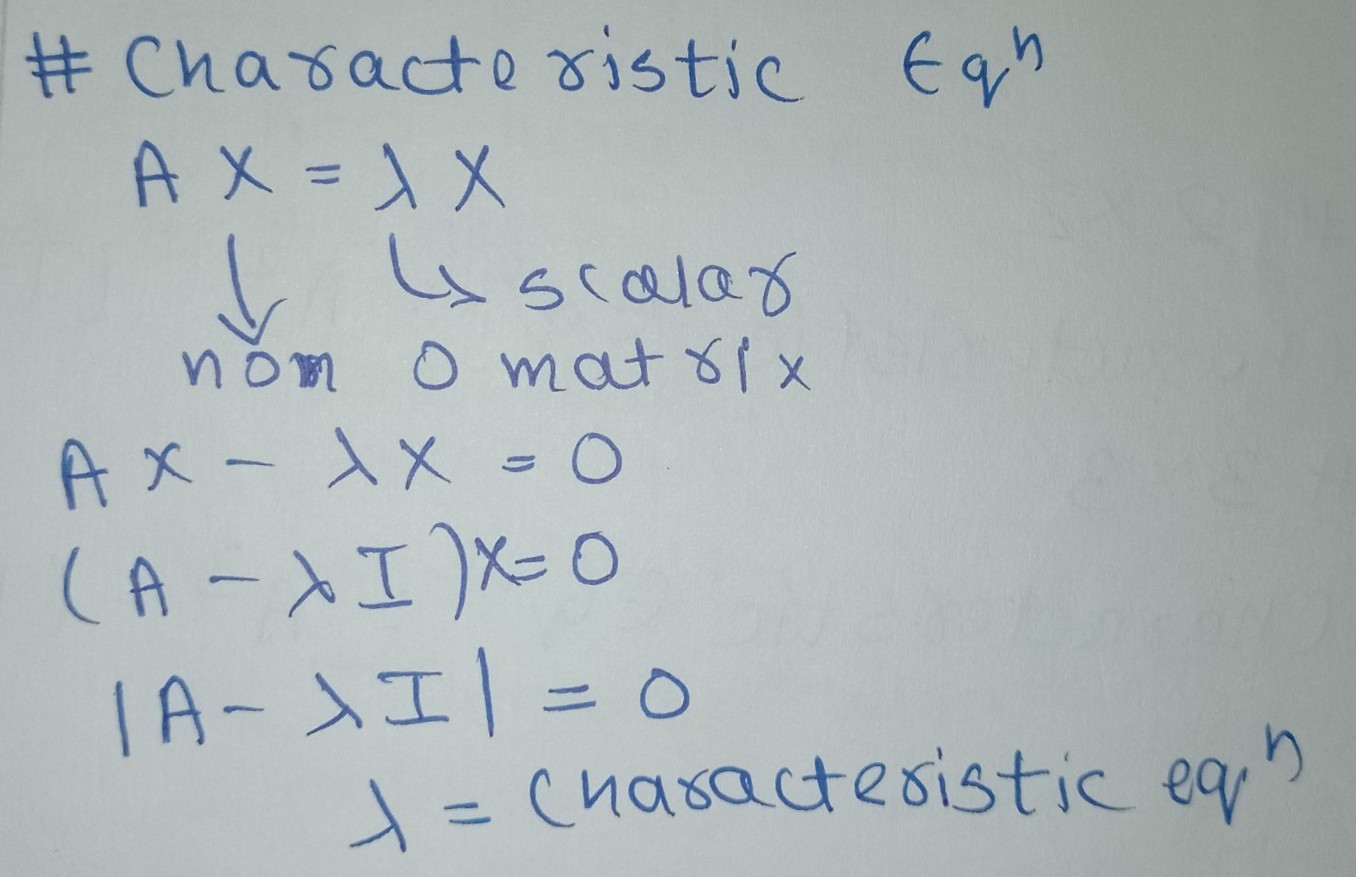 # Characteristic Eqⁿ
A X = λ X
↓ ↳ scalar
non 0 matrix
A X - λ X = 0
( A - λ I ) X = 0
| A - λ I | = 0
λ = Characteristic eqⁿ